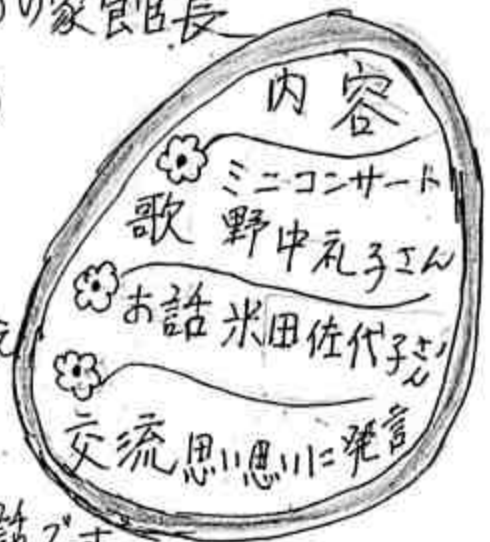 の家館長
内容
ミニコンサート
歌 野中礼子さん
お話 米田佐代子さん
交流 思い思いに発言